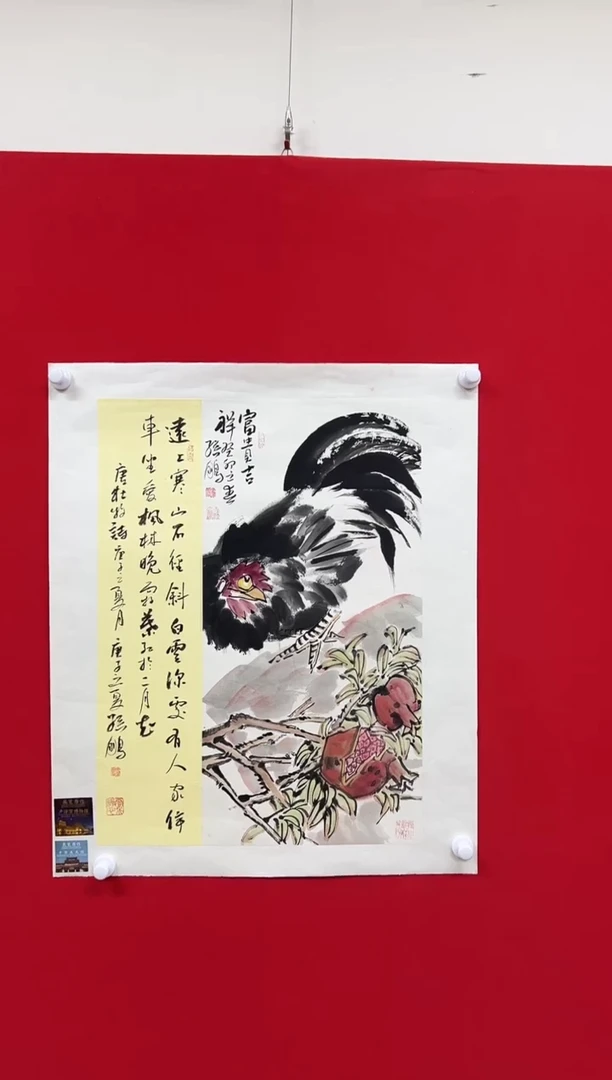 富貴吉
祥癸卯之春
孫鵬
遠上寒山石徑斜白雲深處有人家停
車坐愛楓林晚霜葉红於二月花
唐杜牧詩庚子之夏月 庚子之夏孫鵬